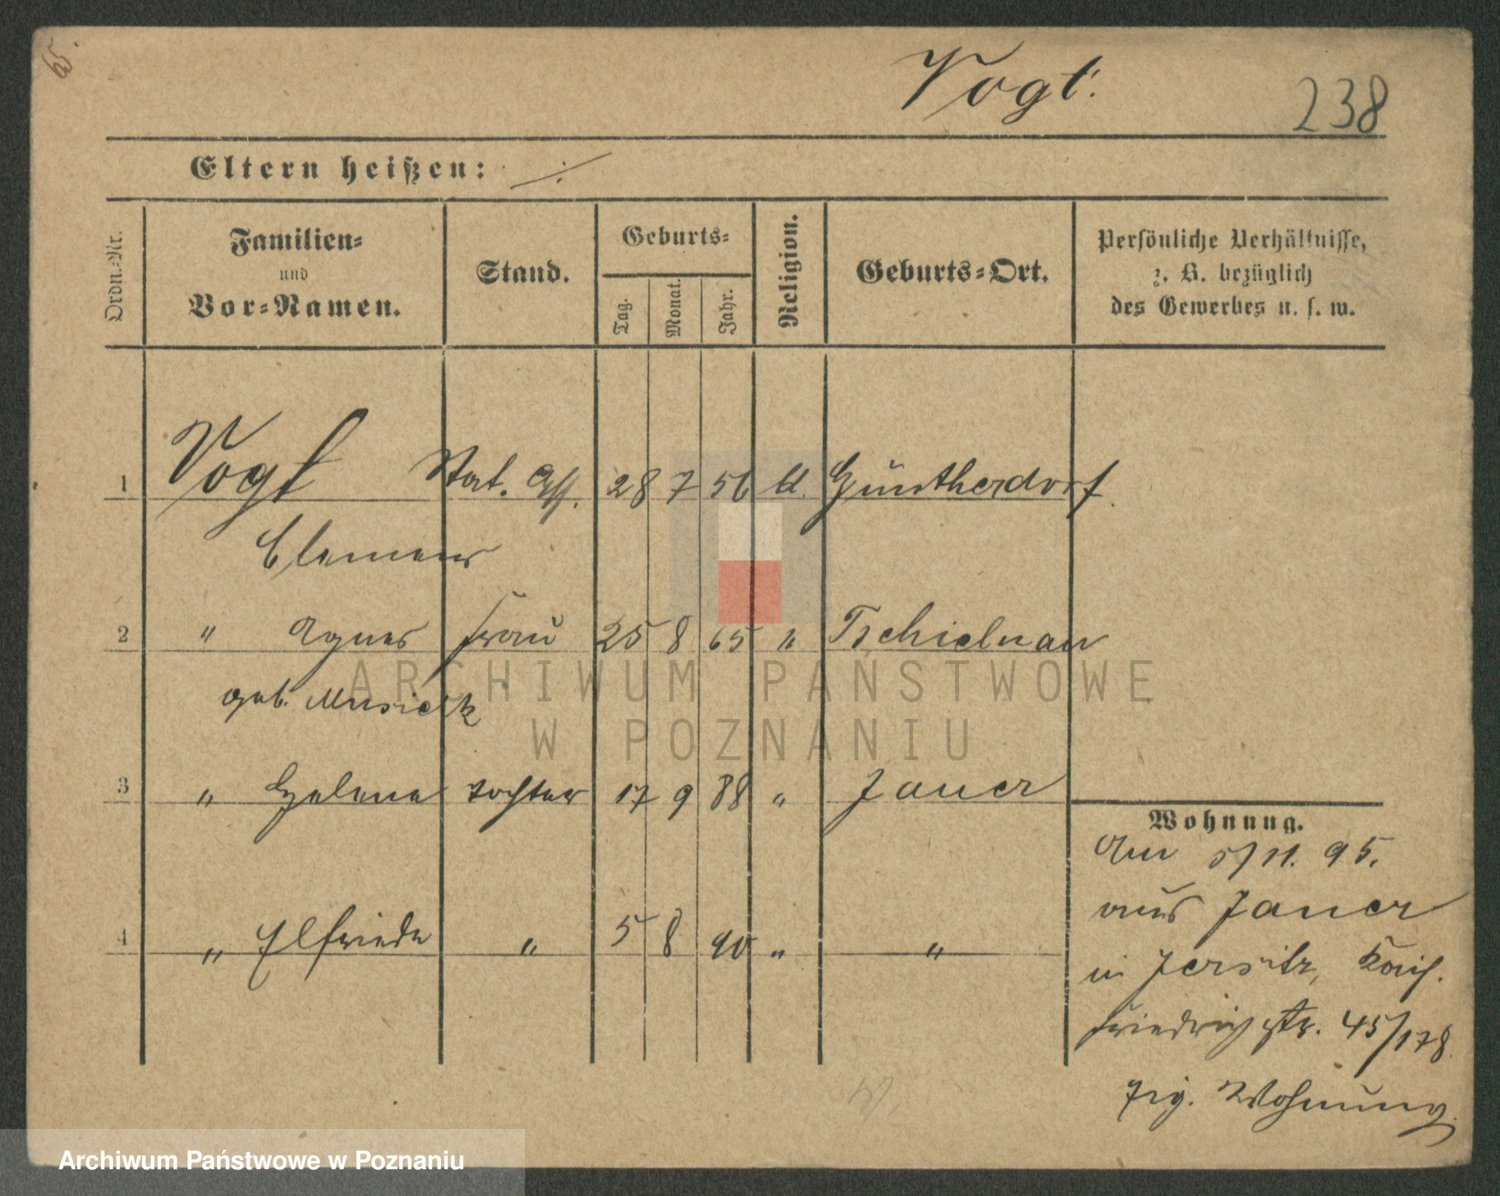 Vogt.
238
Eltern heißen: ./.
Ordn.-Nr.
Familien-
und
Vor-Namen.
Stand.
Geburts-
Tag.
Monat.
Jahr.
Religion.
Geburts-Ort.
Persönliche Verhältnisse,
z. B. bezüglich
des Gewerbes u. s. w.
1 Vogt Stat. Ass. 28 7 56 kl. Güntherdorf
Clemens
2 " Agnes Frau 25 8 65 " Tschielnau
geb. Musick
3 " Helene Tochter 17 9 88 " Jauer
4 " Elfriede " 5 8 90 " "
Wohnung.
Am 5/11. 95.
aus Jauer
in Jersitz, Kais.
Friedrichstr. 45/178
Wohnung
ARCHIWUM PAŃSTWOWE
W POZNANIU
Archiwum Państwowe w Poznaniu